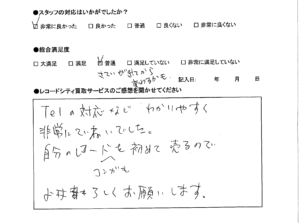 ●スタッフの対応はいかがでしたか？
☑非常に良かった　□良かった　□普通　□良くない　□非常に良くない
●総合満足度
□大満足　□満足　☑普通　□満足していない　□非常に満足していない
さてい がでてから
記入日:　年　月　日
●レコードシティ買取サービスのご感想を聞かせてください
Telの対応など わかりやすく
非常にていねいでした。
自分のレコードを初めて売るので
お手柔らかによろしくお願いします。